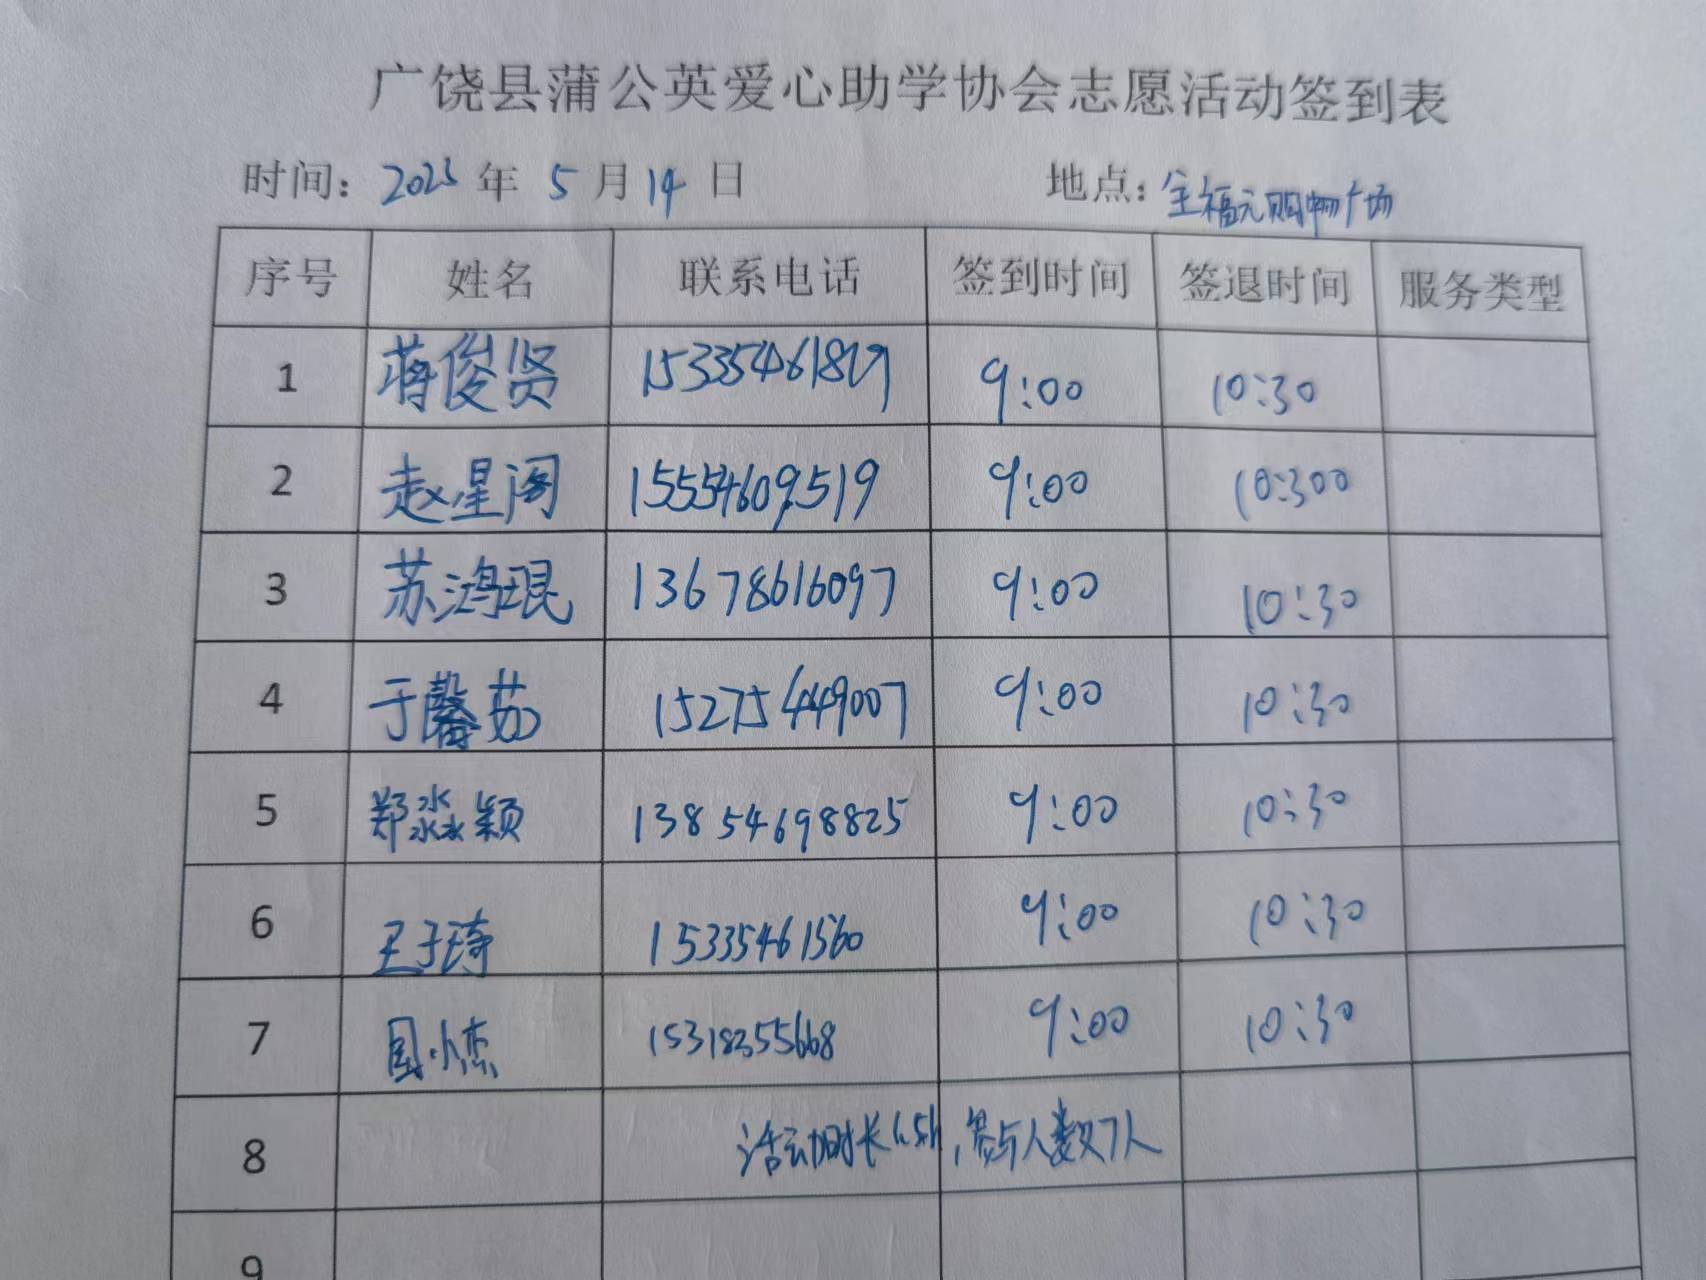 广饶县蒲公英爱心助学协会志愿活动签到表
时间：2025 年 5 月 14 日 地点：全福元购物广场
序号 姓名 联系电话 签到时间 签退时间 服务类型
1 蒋俊贤 9:00 10:30
2 赵星阁 15554609519 9:00 10:300
3 苏鸿琨 13678616097 9:00 10:30
4 于馨茹 15275449007 9:00 10:30
5 郑淼颖 13854698825 9:00 10:30
6 王子琦 15335461560 9:00 10:30
7 国小杰 15318355668 9:00 10:30
8 活动时长1.5h，参与人数7人
9